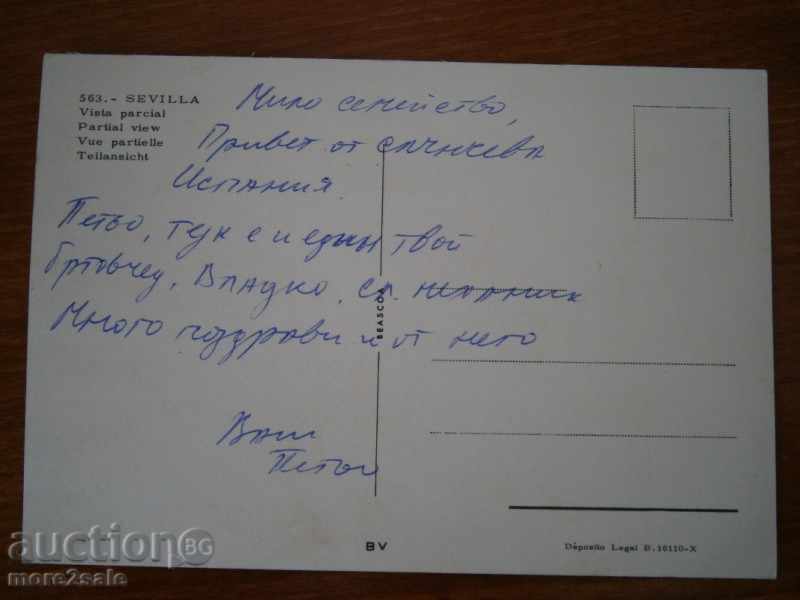 563.- SEVILLA
Vista parcial
Partial view
Vue partielle
Teilansicht
Мило семейство,
Привет от слънчева
Испания.
Петьо, тук е и един твой
братовчед, Владко, сл.
Много поздрави и от него
Ваш
BEASCOA
BV
Depósito Legal B.16110-X
auctionBG
more2sale